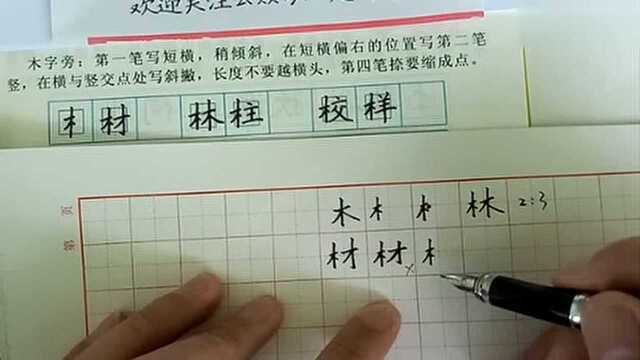 欢迎关注公众
木字旁：第一笔写短横，稍倾斜，在短横偏右的位置写第二笔
竖，在横与竖交点处写斜撇，长度不要越横头，第四笔捺要缩成点。
木 材 林 柱 校 样
第 页
木 木 木 林 2:3
材 材 × 木